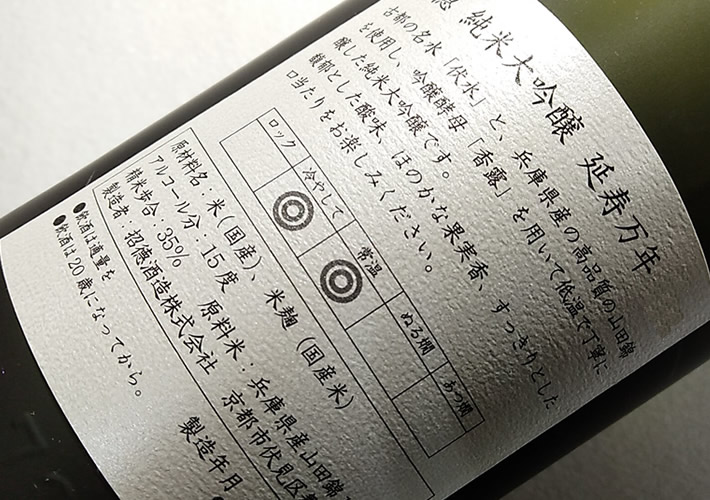 純米大吟醸 延寿万年
古都の名水「伏水」と、兵庫県産の高品質の山田錦
を使用し、吟醸酵母「香露」を用いて低温で丁寧に
醸した純米大吟醸です。
馥郁とした酸味、ほのかな果実香、すっきりとした
口当たりをお楽しみください。
ロック 冷やして 常温 ぬる燗 あつ燗
◎ ◎
原材料名：米(国産)、米麹(国産米)
アルコール分：15度 原料米：兵庫県産山田錦
精米歩合：35%
製造者：招德酒造株式会社 京都市伏見区
製造年月
●飲酒は適量を
●飲酒は20歳になってから。